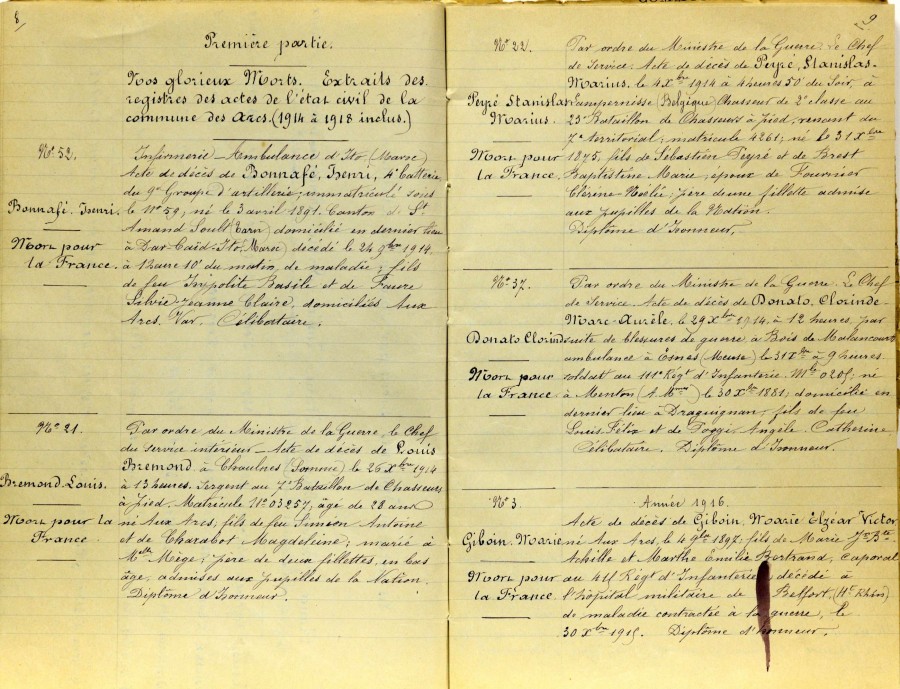 8
Première partie.
Nos glorieux Morts. Extraits des
registres des actes de l'état civil de la
commune des Arcs. (1914 à 1918 inclus.)
N° 52.
Bonnafé, Henri.
Mort pour
la France.
Infirmerie - Ambulance d'Ito, (Maroc)
Acte de décès de Bonnafé, Henri, 4e batterie
du 9e Groupe d'artillerie, immatriculé sous
le N° 59, né le 3 avril 1891. Canton de St
Amand Soult (Tarn) domicilié en dernier lieu
à Dar-Caïd-Ito, (Maroc) décédé le 24 9bre 1914.
à 1 heure 10' du matin, de maladie; fils
de feu Hippolite Basile et de Faure
Silvie-Jeanne Claire, domiciliés Aux
Arcs. Var. Célibataire.
N° 21.
Bremond Louis.
Mort pour la
France.
Par ordre du Ministre de la Guerre, le Chef
du service intérieur - Acte de décès de Louis
Bremond à Chaulnes (Somme) le 26 Xbre 1914
à 13 heures. Sergent au 7e Bataillon de Chasseurs
à Pied. Matricule N° 03257, âgé de 28 ans
né Aux Arcs, fils de feu Siméon Antoine
et de Charabot Magdeleine; marié à
Melle Mège; père de deux fillettes, en bas
âge, admises aux pupilles de la Nation.
Diplôme d'honneur.
9
N° 22.
Peyré Stanislas
Marius.
Mort pour
la France.
Par ordre du Ministre de la Guerre. Le Chef
de Service. Acte de décès de Peyré, Stanislas-
Marius. le 4 Xbre 1914 à 4 heures 50' du soir, à
Pampernisse (Belgique) Chasseur de 2e classe au
23e Bataillon de Chasseurs à Pied, venant du
7e territorial, matricule 4261; né le 31 Xbre
1875, fils de Sébastien Peyré et de Brest
Baptistine Marie; époux de Fournier
père de une fillette admise
aux pupilles de la Nation.
Diplôme d'honneur.
N° 37.
Donato Clorinde
Mort pour
la France
Par ordre du Ministre de la Guerre. Le Chef
de Service. Acte de décès de Donato, Clorinde-
Marc-Aurèle, le 29 Xbre 1914, à 12 heures, par
suite de blessures de guerre, à Bois de Malancourt
ambulance à Esnes (Meuse) le 31 Xbre à 9 heures.
soldat au 111e Régt d'Infanterie. Mle 0205, né
à Menton (A. Mmes) le 30 Xbre 1881, domicilié en
dernier lieu à Draguignan, fils de feu
Louis Félix et de Poggi Angèle. Catherine.
Célibataire. Diplôme d'honneur.
N° 3.
Giboin. Marie
Mort pour
la France.
Année 1916.
Acte de décès de Giboin, Marie Elzéar Victor
né Aux Arcs, le 4 9bre 1897, fils de Marie Jn Bte
Achille et Marthe Emilie Bertrand, Caporal
au 411 Régt d'Infanterie, décédé à
l'hôpital militaire de Belfort, (Ht Rhin)
de maladie contractée à la guerre, le
30 Xbre 1915. Diplôme d'honneur.